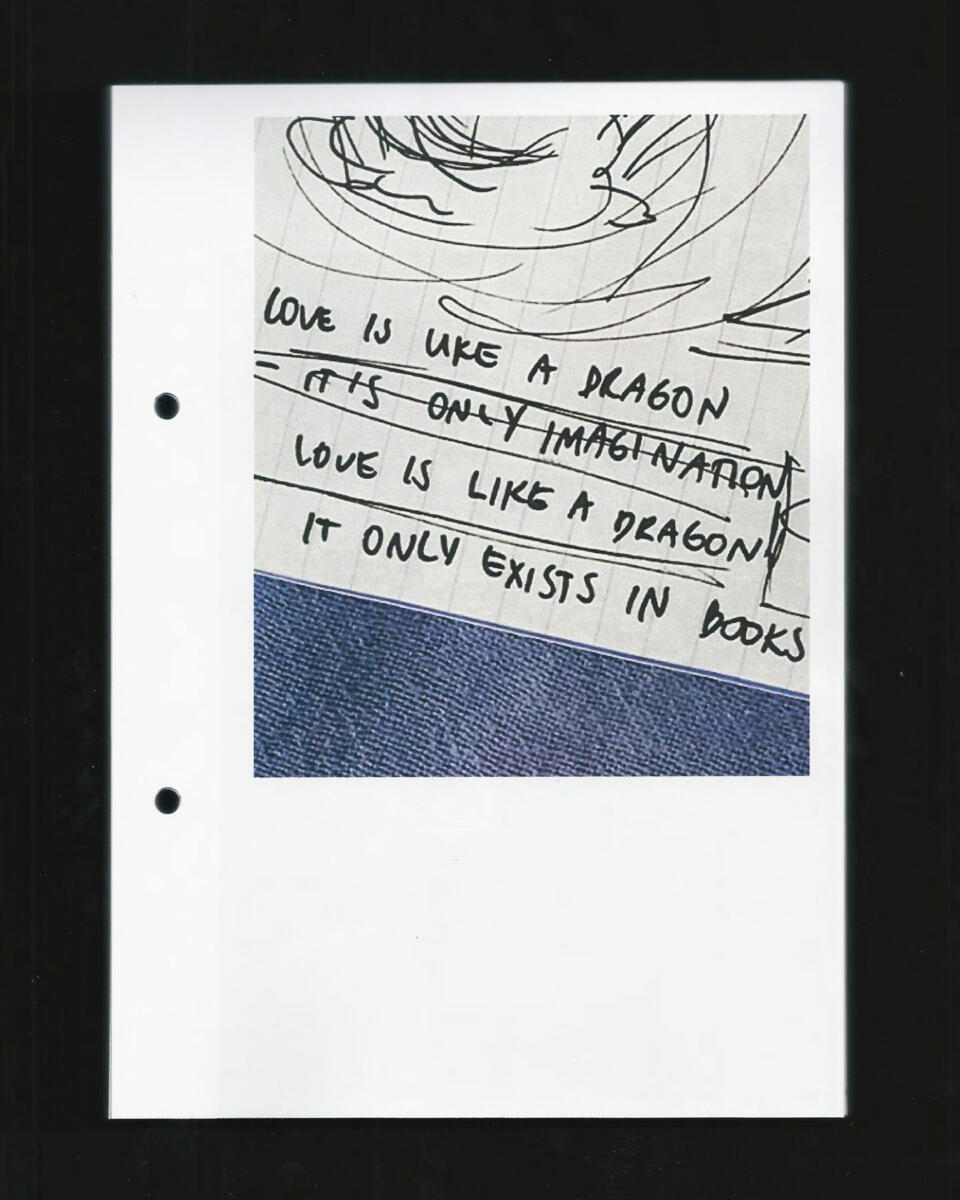 LOVE IS LIKE A DRAGON
- IT'S ONLY IMAGINATION
LOVE IS LIKE A DRAGON
IT ONLY EXISTS IN BOOKS